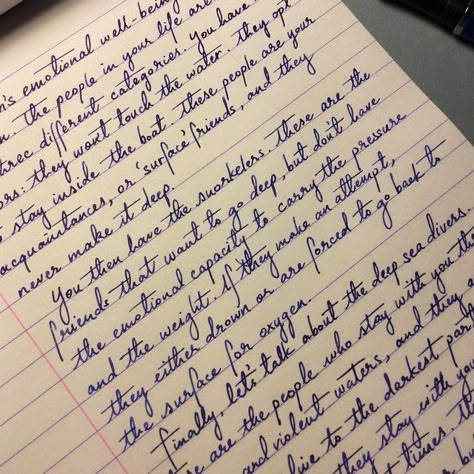 's emotional well-being
The people in your life are
three different categories. You have
ors: they wont touch the water. They opt
stay inside the boat. These people are your
acquaintances, or 'surface' friends, and they
never make it deep.
You then have the snorkelers. These are the
friends that want to go deep, but don't have
the emotional capacity to carry the pressure
and the weight. If they make an attempt,
they either drown or are forced to go back to
the surface for oxygen.
Finally, let's talk about the deep sea divers.
se are the people who stay with you th
and violent waters, and they
ive to the darkest part
they stay with you
times.